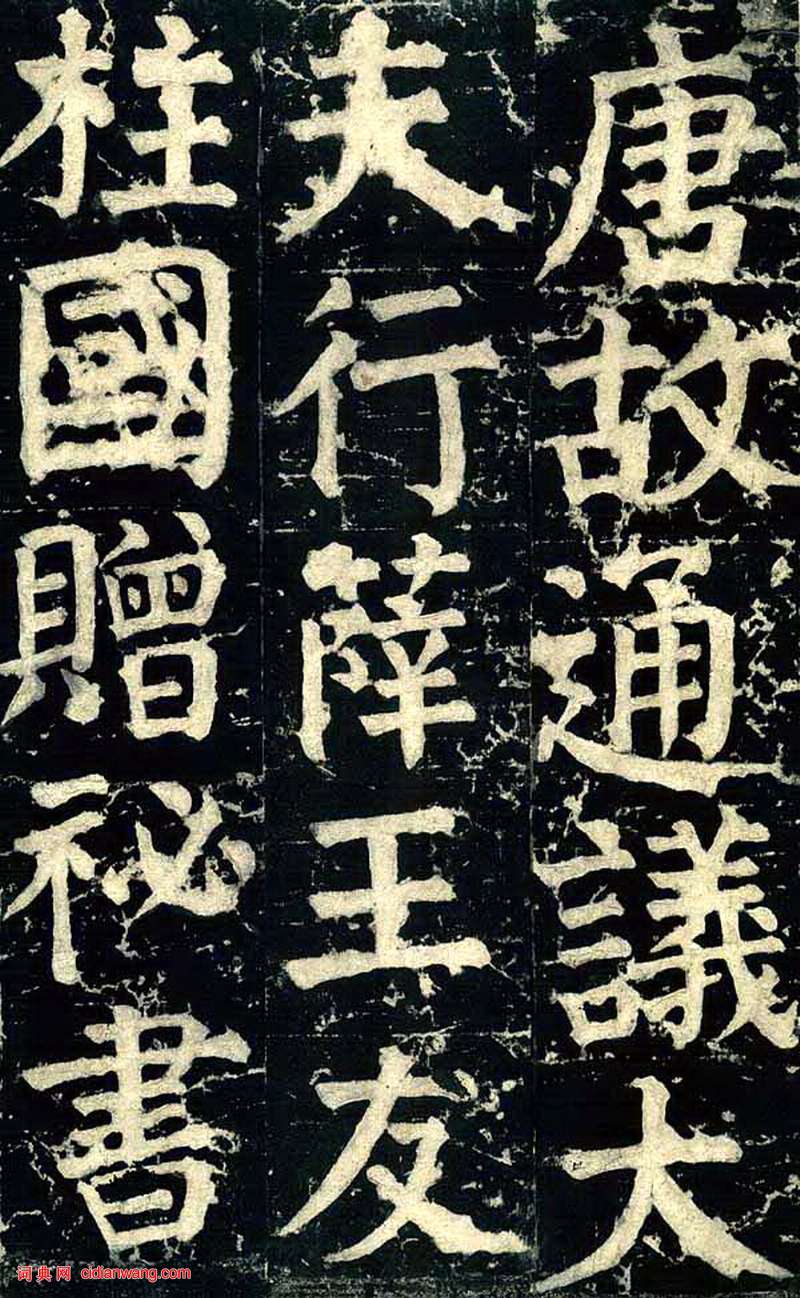 唐故通議大
夫行薛王友
柱國贈祕書
词典网 cidianwang.com